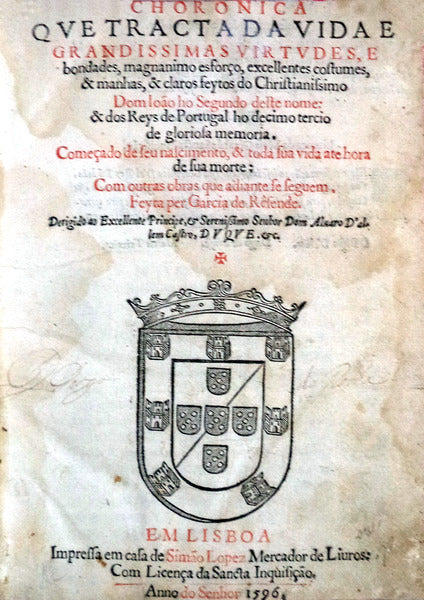 CHORONICA
QVE TRACTA DA VIDA E
GRANDISSIMAS VIRTVDES, E
bondades, magnanimo esforço, excellentes costumes,
& manhas, & claros feytos do Christianissimo
Dom Ioão ho Segundo deste nome:
& dos Reys de Portugal ho decimo tercio
de gloriosa memoria.
Começado de seu nascimento, & toda sua vida ate hora
de sua morte:
Com outras obras que adiante se seguem.
Feyta per Garcia de Resende.
Derigido ao Excellente Principe, & Serenissimo Senhor Dom Aluaro D'alem
Castro, DVQVE. &c.
EM LISBOA
Impressa em casa de Simão Lopez Mercador de Liuros:
Com Licença da Sancta Inquisição.
Anno do Senhor 1596.